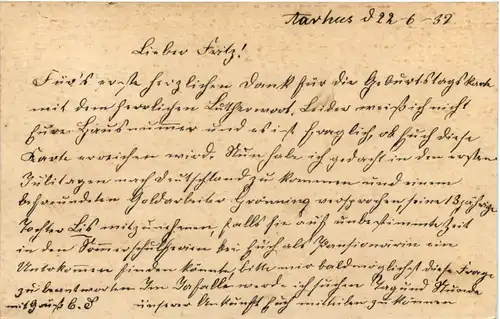 Aarhus d 22-6-39
Lieber Fritz!
Für's erste herzlichen Dank für die Geburtstagskarte
mit dem herrlichen Lutherwort. Leider weiß ich nicht
Eure Hausnummer und es ist fraglich, ob Euch diese
Karte erreichen wird. Nun habe ich gedacht in den ersten
Julitagen nach Deutschland zu kommen und einem
befreundeten Goldarbeiter versprochen sein 13 jährige
Tochter Lis mitzunehmen, falls sie auf unbestimmte Zeit
in den Sommerschulferien bei Euch als Pensionärin ein
Unterkommen finden könnte, bitte mir baldmöglichst diese Frage
zu beantworten Im Jafalle werde ich suchen Tag und Stunde
mit Gruß C. S. unserer Ankunft Euch mitteilen zu können